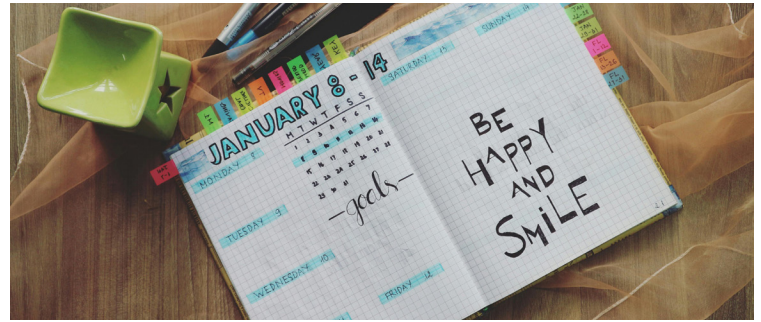 JANUARY 8 - 14
M T W T F S S
1 2 3 4 5 6 7
8 9 10 11 12 13 14
15 16 17 18 19 20 21
22 23 24 25 26 27 28
29 30 31
MONDAY 8
goals
TUESDAY 9
WEDNESDAY 10
FRIDAY 12
SATURDAY 13
SUNDAY 14
BE
HAPPY
AND
SMiLE
21
KEY